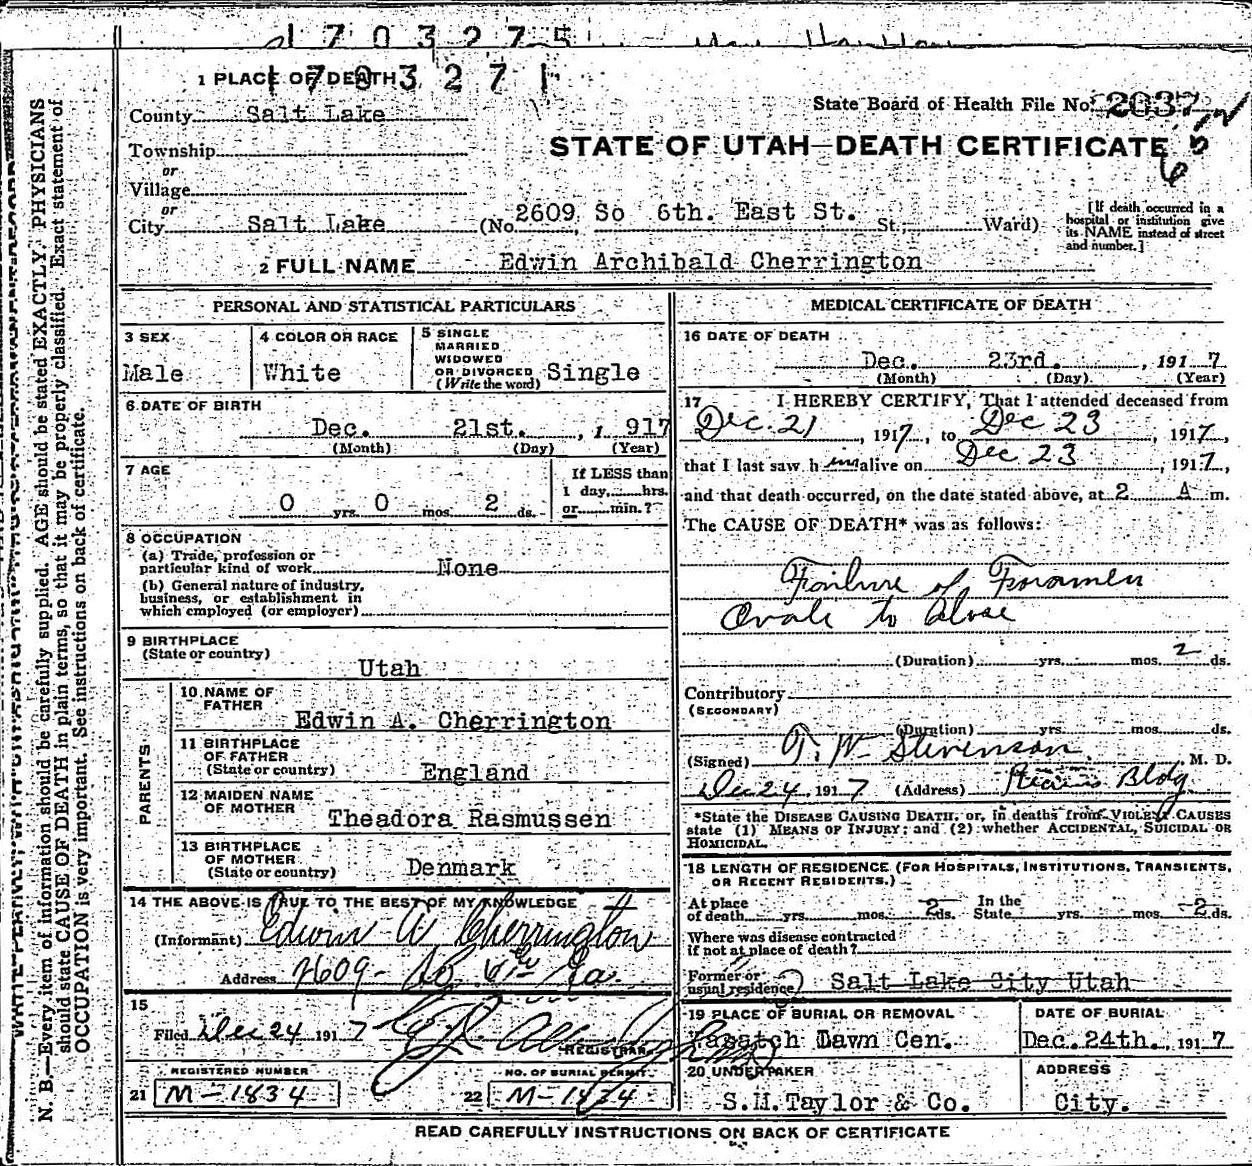 170327
1 PLACE OF DEATH
170327
State Board of Health File No. 2037
County Salt Lake
STATE OF UTAH—DEATH CERTIFICATE
Township
or
Village
or
City Salt Lake (No. 2609 So 6th. East St. St.; Ward)
[If death occurred in a
hospital or institution give
its NAME instead of street
and number.]
2 FULL NAME Edwin Archibald Cherrington
PERSONAL AND STATISTICAL PARTICULARS
3 SEX
Male
4 COLOR OR RACE
White
5 SINGLE
MARRIED
WIDOWED
OR DIVORCED
(Write the word) Single
6 DATE OF BIRTH
Dec. 21st. , 1 917
(Month) (Day) (Year)
7 AGE
0 yrs. 0 mos. 2 ds.
If LESS than
1 day, hrs.
or min.?
8 OCCUPATION
(a) Trade, profession or
particular kind of work None
(b) General nature of industry,
business, or establishment in
which employed (or employer)
9 BIRTHPLACE
(State or country)
Utah
PARENTS
10 NAME OF
FATHER
Edwin A. Cherrington
11 BIRTHPLACE
OF FATHER
(State or country) England
12 MAIDEN NAME
OF MOTHER
Theadora Rasmussen
13 BIRTHPLACE
OF MOTHER
(State or country) Denmark
14 THE ABOVE IS TRUE TO THE BEST OF MY KNOWLEDGE
(Informant) Edwin A Cherrington
Address 2609 - So
15
Filed Dec 24 1917
REGISTRAR
REGISTERED NUMBER
21 M-1834
NO. OF BURIAL PERMIT
22 M-1834
MEDICAL CERTIFICATE OF DEATH
16 DATE OF DEATH
Dec. 23rd. , 191 7
(Month) (Day) (Year)
17 I HEREBY CERTIFY, That I attended deceased from
Dec. 21 , 1917, to Dec 23 , 1917,
that I last saw him alive on Dec 23 , 1917,
and that death occurred, on the date stated above, at 2 A m.
The CAUSE OF DEATH* was as follows:
Failure of Foramen
Ovale to close
(Duration) yrs. mos. 2 ds.
Contributory
(SECONDARY)
(Duration) yrs. mos. ds.
(Signed) T. W. Stevenson M. D.
Dec 24 1917 (Address) Bldg
*State the DISEASE CAUSING DEATH, or, in deaths from VIOLENT CAUSES
state (1) MEANS OF INJURY; and (2) whether ACCIDENTAL, SUICIDAL OR
HOMICIDAL.
18 LENGTH OF RESIDENCE (FOR HOSPITALS, INSTITUTIONS, TRANSIENTS,
OR RECENT RESIDENTS.)
At place
of death yrs. mos. 2 ds.
In the
State yrs. mos. 2 ds.
Where was disease contracted
if not at place of death?
Former or
usual residence Salt Lake City Utah
19 PLACE OF BURIAL OR REMOVAL
Wasatch Lawn Cem.
DATE OF BURIAL
Dec. 24th. , 191 7
20 UNDERTAKER
S.M. Taylor & Co.
ADDRESS
City.
READ CAREFULLY INSTRUCTIONS ON BACK OF CERTIFICATE
N. B.—Every item of information should be carefully supplied. AGE should be stated EXACTLY. PHYSICIANS
should state CAUSE OF DEATH in plain terms, so that it may be properly classified. Exact statement of
OCCUPATION is very important. See instructions on back of certificate.